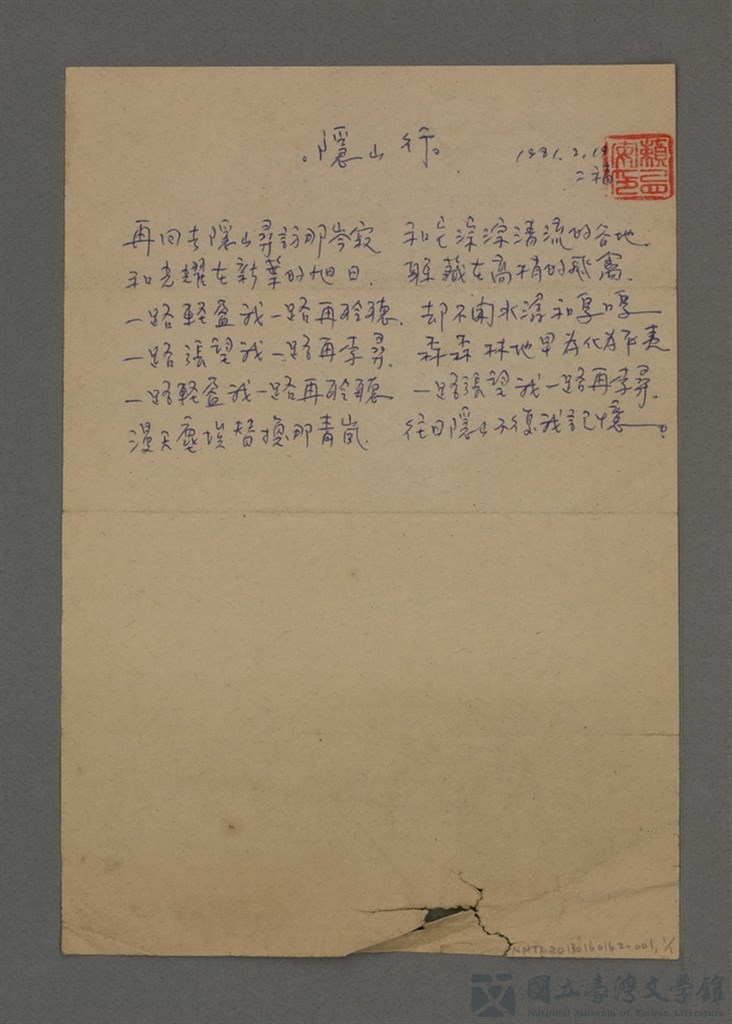 。隱山行。
1981.2.19
二福
再回去隱山尋訪那岑寂 和它深深清流的谷地.
和光耀在新葉的旭日. 躲藏在高梢的飛鳶.
一路輕盈我一路再聆聽. 却不聞水湲和嚶嚶
一路張望我一路再季尋. 森森林地早為化為平夷
一路輕盈我一路再聆聽 一路張望我一路再季尋.
漫天塵埃替換那青嵐. 往日隱山不復我記憶。
NMTL20130160162-001, 1/1
國立臺灣文學館
National Museum of Taiwan Literature